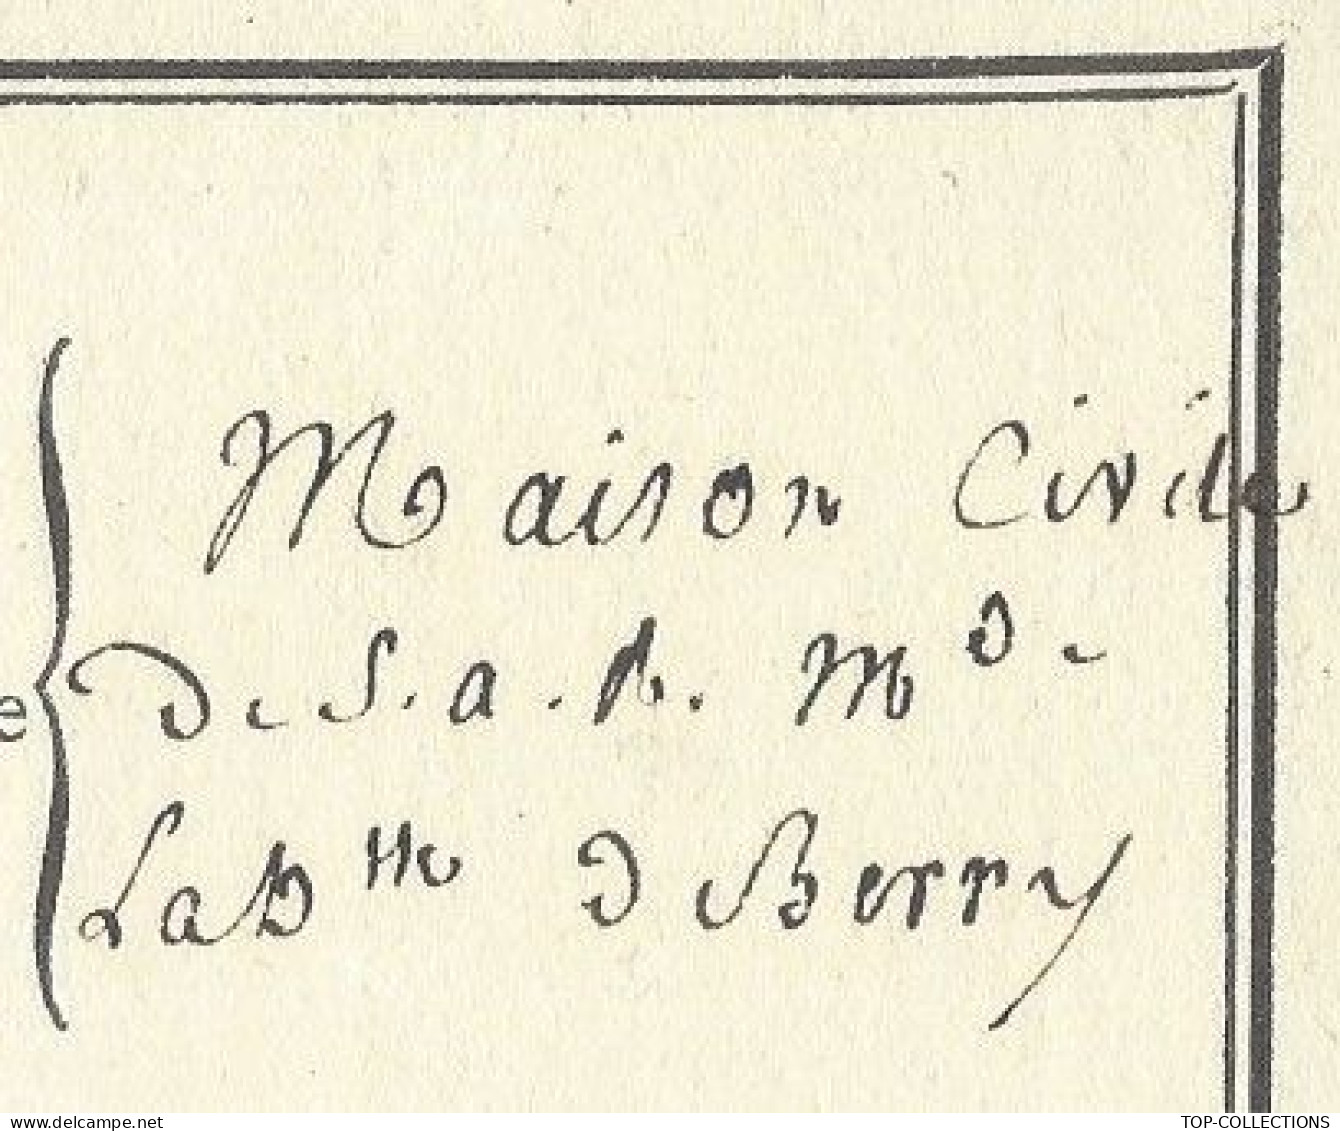 Maison Civile
e
de S. a. R. Md e
La Dsse de Berry
www.delcampe.net
TOP-COLLECTIONS